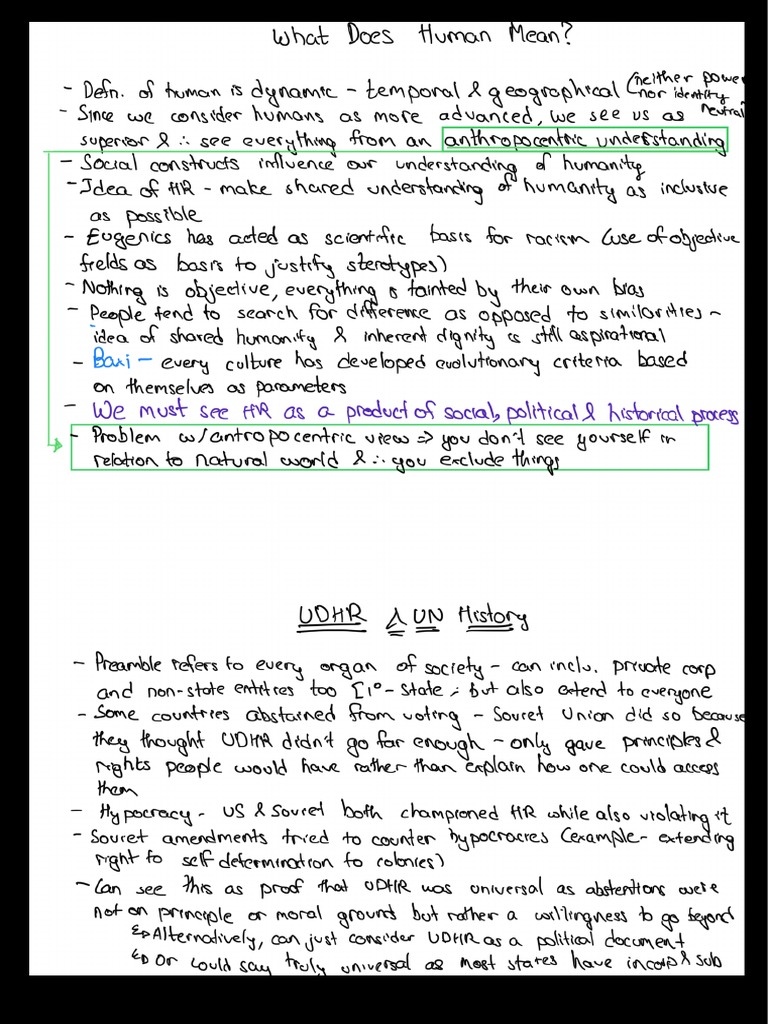 What Does Human Mean?
- Defn. of human is dynamic - temporal & geographical (neither power
nor identity
neutral)
- Since we consider humans as more advanced, we see us as
superior & ∴ see everything from an anthropocentric understanding
- Social constructs influence our understanding of humanity
- Idea of HR - make shared understanding of humanity as inclusive
as possible
- Eugenics has acted as scientific basis for racism (use of objective
fields as basis to justify sterotypes)
- Nothing is objective, everything is tainted by their own bias
- People tend to search for difference as opposed to similarities ~
idea of shared humanity & inherent dignity is still aspirational
- Baxi - every culture has developed evolutionary criteria based
on themselves as parameters
- We must see HR as a product of social, political & historical process
- Problem w/ antropocentric view => you don't see yourself in
relation to natural world & ∴ you exclude things
UDHR & UN History
- Preamble refers to every organ of society - can inclu. private corp
and non-state entities too [1° - State ; but also extend to everyone
- Some countries abstained from voting - Soviet Union did so because
they thought UDHR didn't go far enough - only gave principles &
rights people would have rather than explain how one could access
them
- Hypocracy - US & Soviet both championed HR while also violating it
- Soviet amendments tried to counter hypocracies (example - extending
right to self determination to colonies)
- Can see this as proof that UDHR was universal as abstentions were
not on principle or moral ground but rather a willingness to go beyond
↳ Alternatively, can just consider UDHR as a political document
↳ Or could say truly universal as most states have incorp & sub